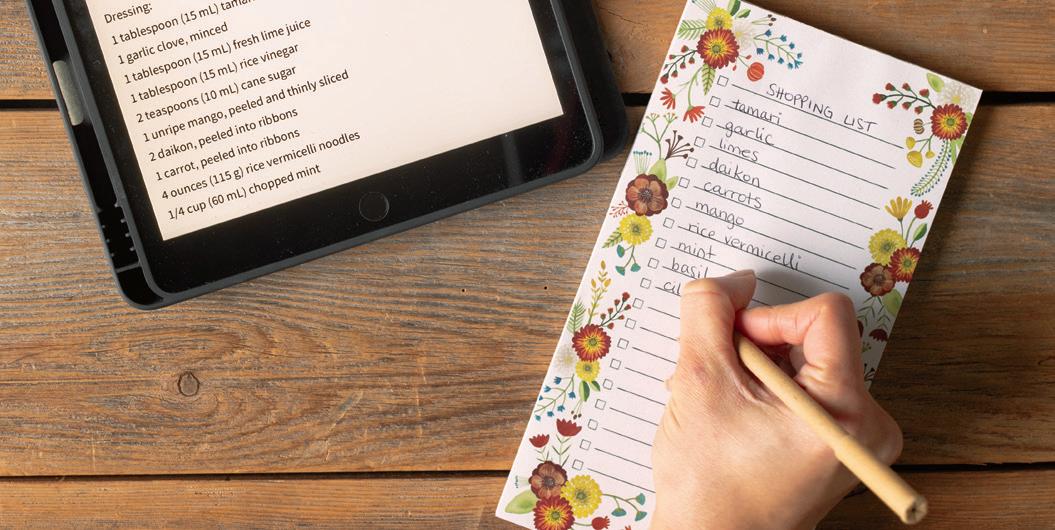 Dressing:
1 tablespoon (15 mL) tamari
1 garlic clove, minced
1 tablespoon (15 mL) fresh lime juice
1 tablespoon (15 mL) rice vinegar
2 teaspoons (10 mL) cane sugar
1 unripe mango, peeled and thinly sliced
2 daikon, peeled into ribbons
1 carrot, peeled into ribbons
4 ounces (115 g) rice vermicelli noodles
1/4 cup (60 mL) chopped mint
SHOPPING LIST
tamari
garlic
limes
daikon
carrots
mango
rice vermicelli
mint
basil